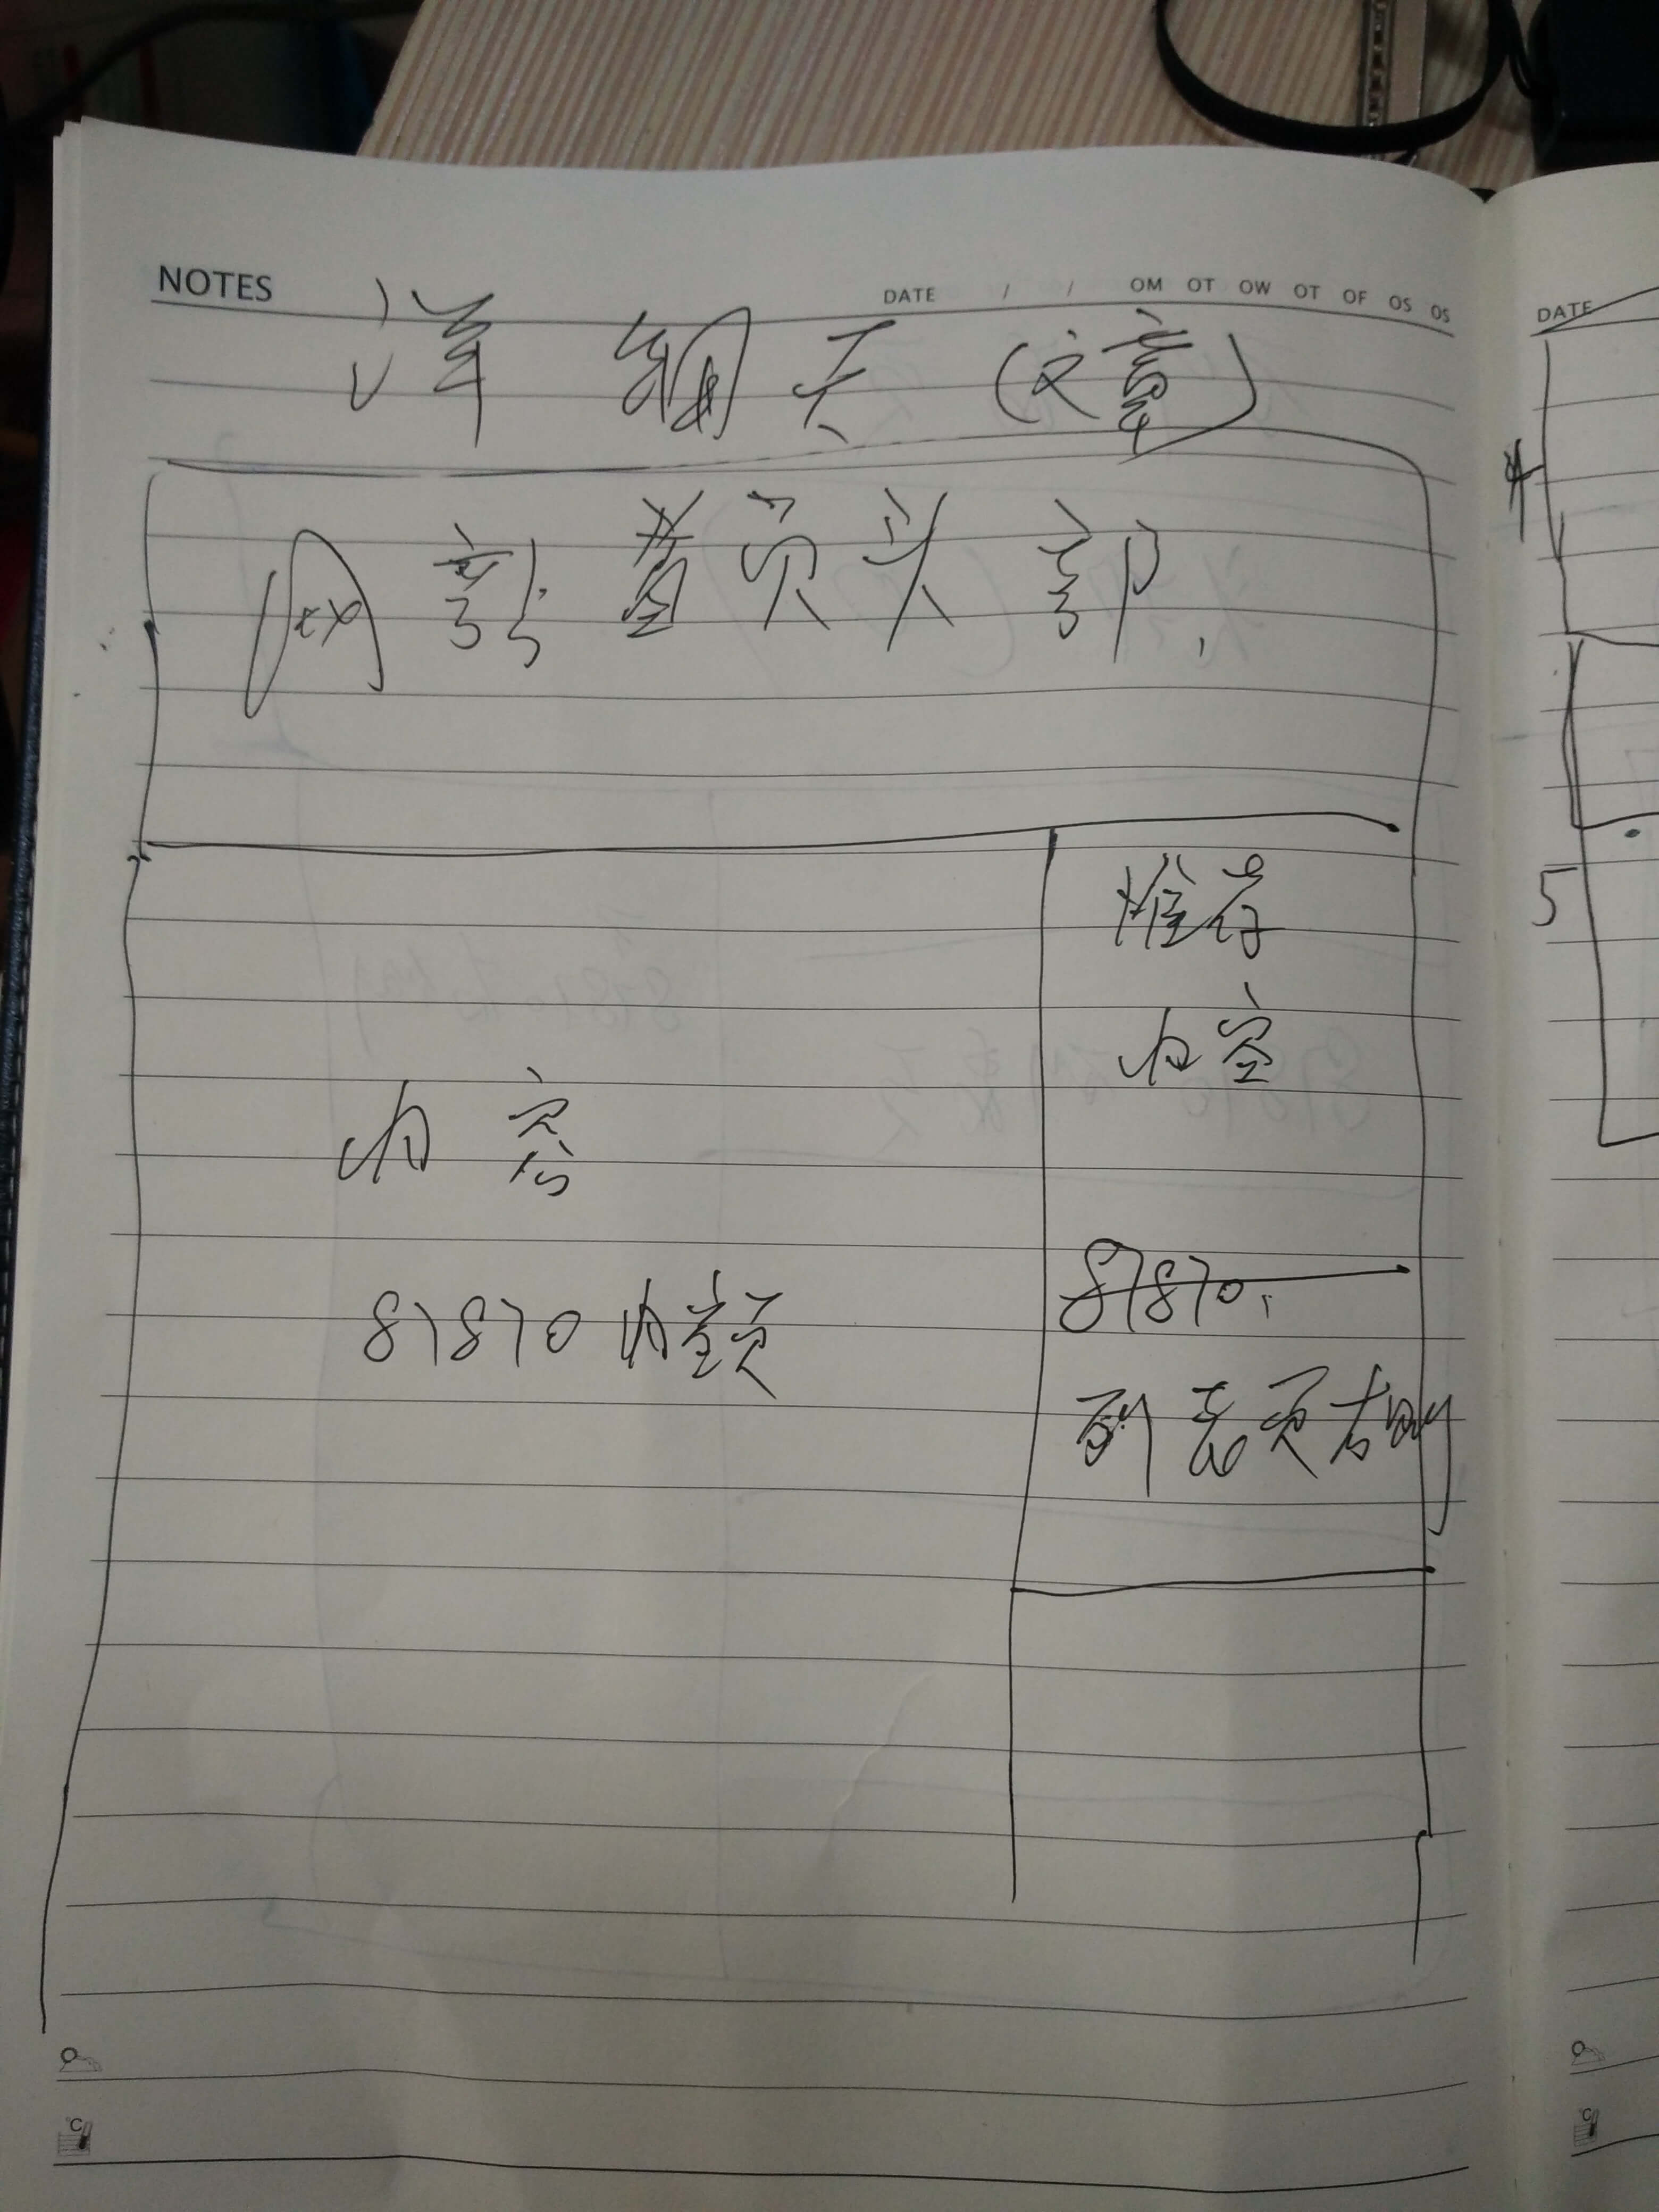 NOTES
DATE / / OM OT OW OT OF OS OS
详细页(文章)
网龙首页头部.
推荐
内容
内容
87870内容页
87870.
列表页右侧
DATE
4
5